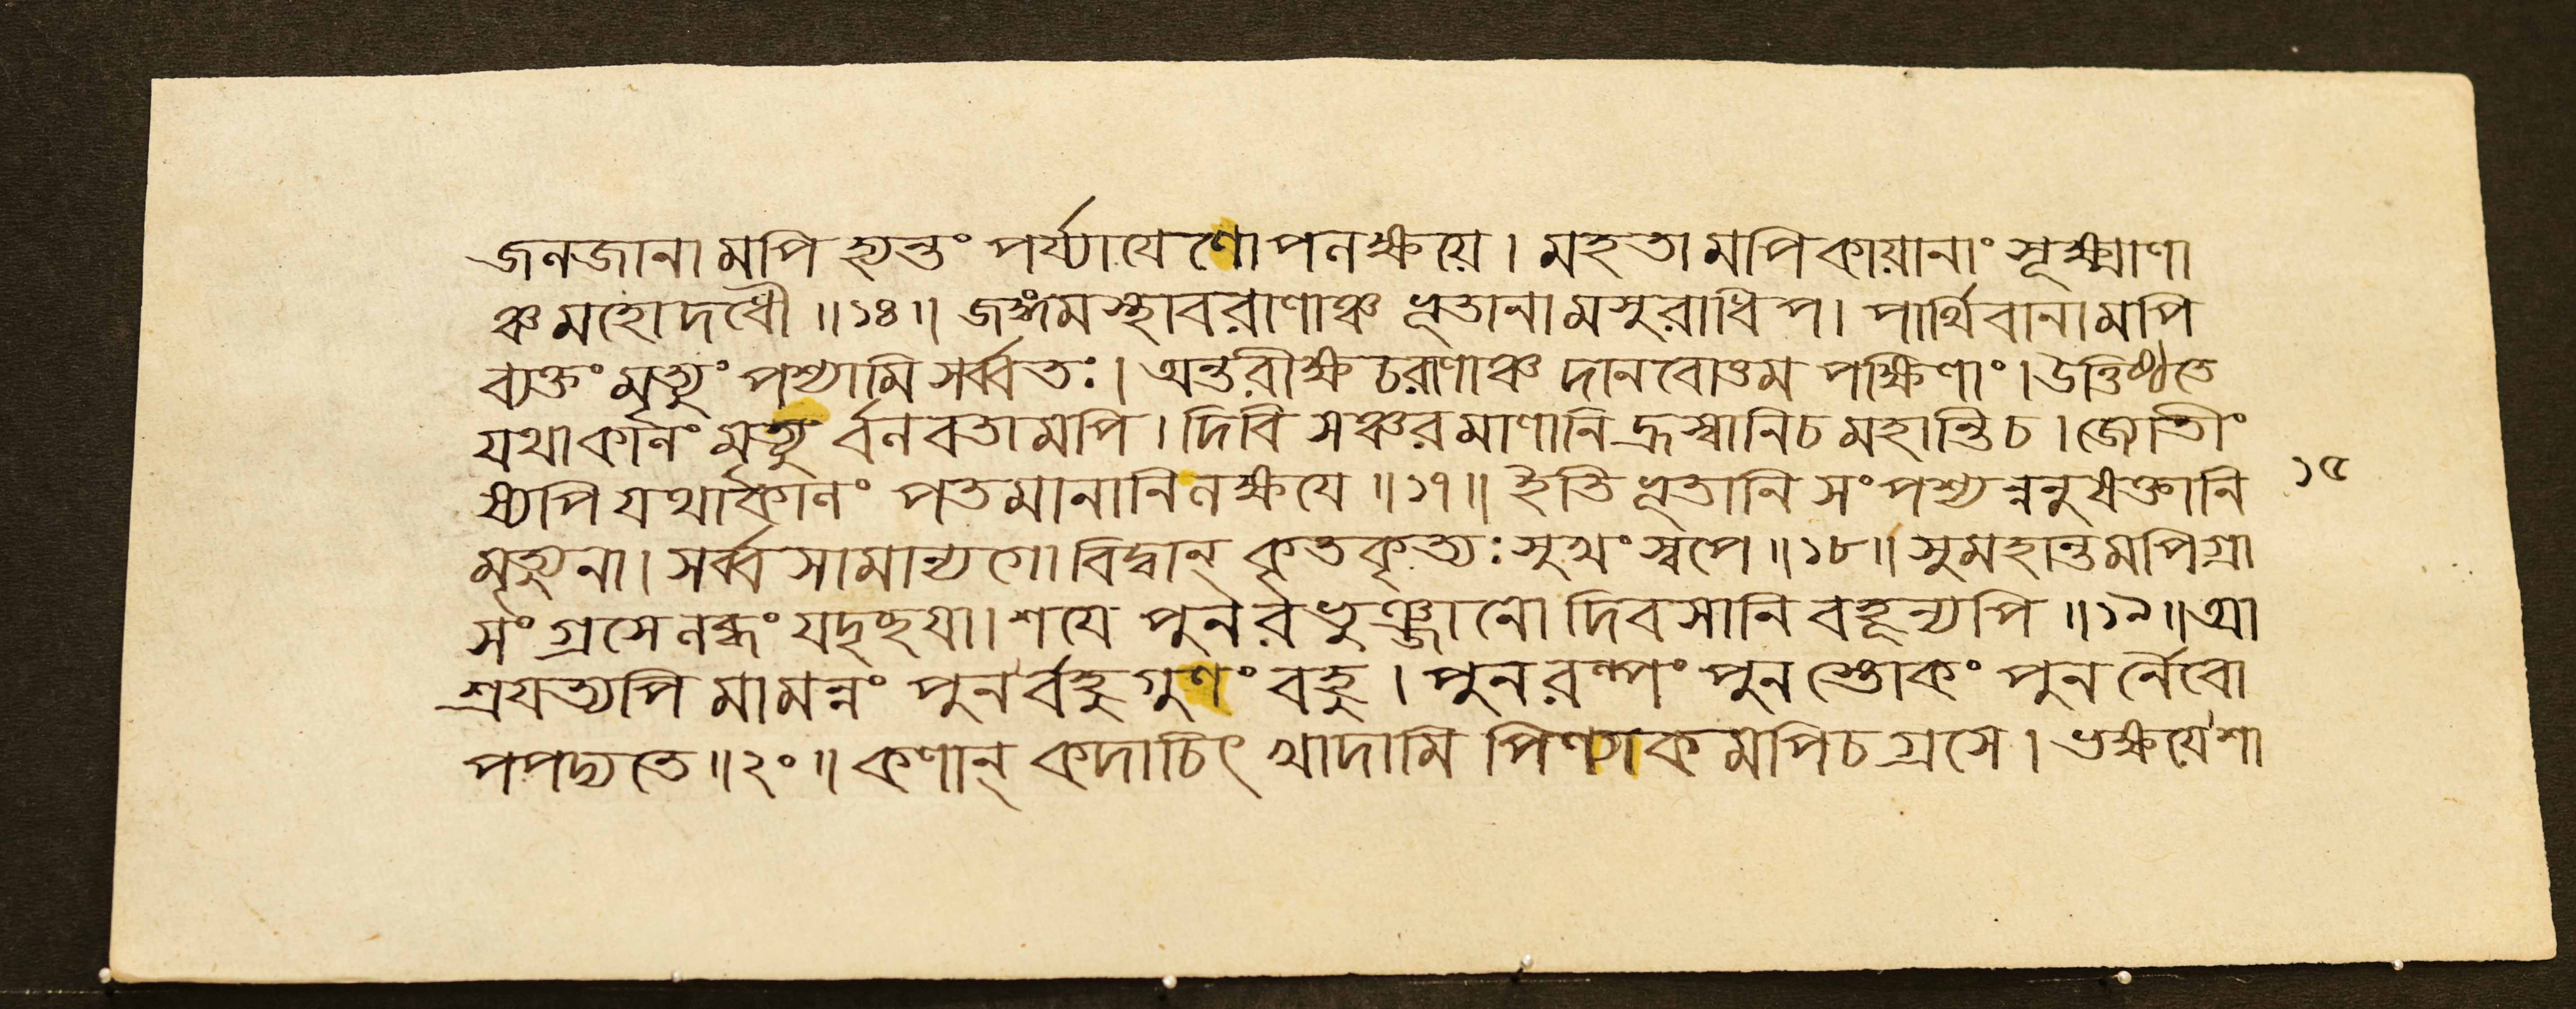 জলজানামপি হ্যন্তং পর্য্যাযেণোপলক্ষয়ে। মহতামপিকায়ানাং সূক্ষ্মাণা
ঞ্চমহোদধৌ॥১৪॥ জঙ্গমস্থাবরাণাঞ্চ ভূতানামসুরাধিপ। পার্থিবানামপি
ব্যক্তং মৃত্যুং পশ্যামি সর্ব্বতঃ। অন্তরীক্ষচরাণাঞ্চ দানবোত্তম পক্ষিণাং। উত্তিষ্ঠতে
যথাকালং মৃত্যুর্বলবতামপি। দিবি সঞ্চরমাণানি হ্রস্বানিচ মহান্তিচ। জ্যোতীং
ষ্যপি যথাকালং পতমানানি লক্ষযে॥১৭॥ ইতি ভূতানি সংপশ্যন্ননুষক্তানি
মৃত্যুনা। সর্ব্বসামান্যগো বিদ্বান্ কৃতকৃত্যঃ সুখং স্বপে॥১৮॥ সুমহান্তমপিগ্রা
সং গ্রসে লব্ধং যদৃচ্ছযা। শযে পুনরভুঞ্জানো দিবসানি বহূন্যপি॥১৯॥ আ
শ্রযত্যপি মামন্নং পুনর্বহুগুণং বহু। পুনরল্পং পুনস্তোকং পুনর্নৈবো
পপদ্যতে॥২০॥ কণান্ কদাচিৎ খাদামি পিণ্যাকমপিচ গ্রসে। ভক্ষযেশা
১৫